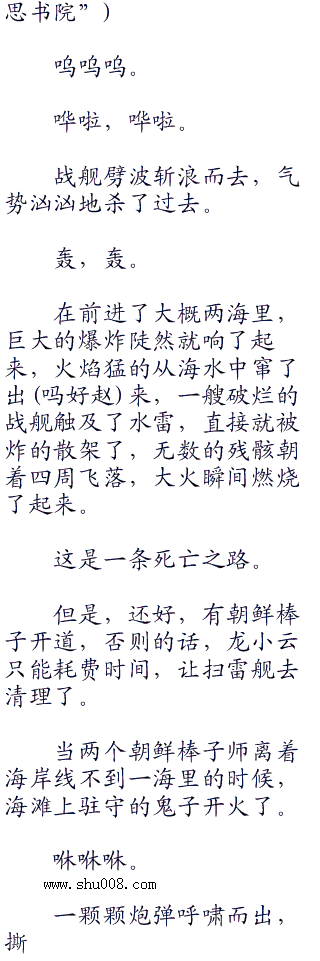 思书院”)
呜呜呜。
哗啦，哗啦。
战舰劈波斩浪而去，气
势汹汹地杀了过去。
轰，轰。
在前进了大概两海里，
巨大的爆炸陡然就响了起
来，火焰猛的从海水中窜了
出(吗好赵)来，一艘破烂的
战舰触及了水雷，直接就被
炸的散架了，无数的残骸朝
着四周飞落，大火瞬间燃烧
了起来。
这是一条死亡之路。
但是，还好，有朝鲜棒
子开道，否则的话，龙小云
只能耗费时间，让扫雷舰去
清理了。
当两个朝鲜棒子师离着
海岸线不到一海里的时候，
海滩上驻守的鬼子开火了。
咻咻咻。
www.shu008.com
一颗颗炮弹呼啸而出，
撕